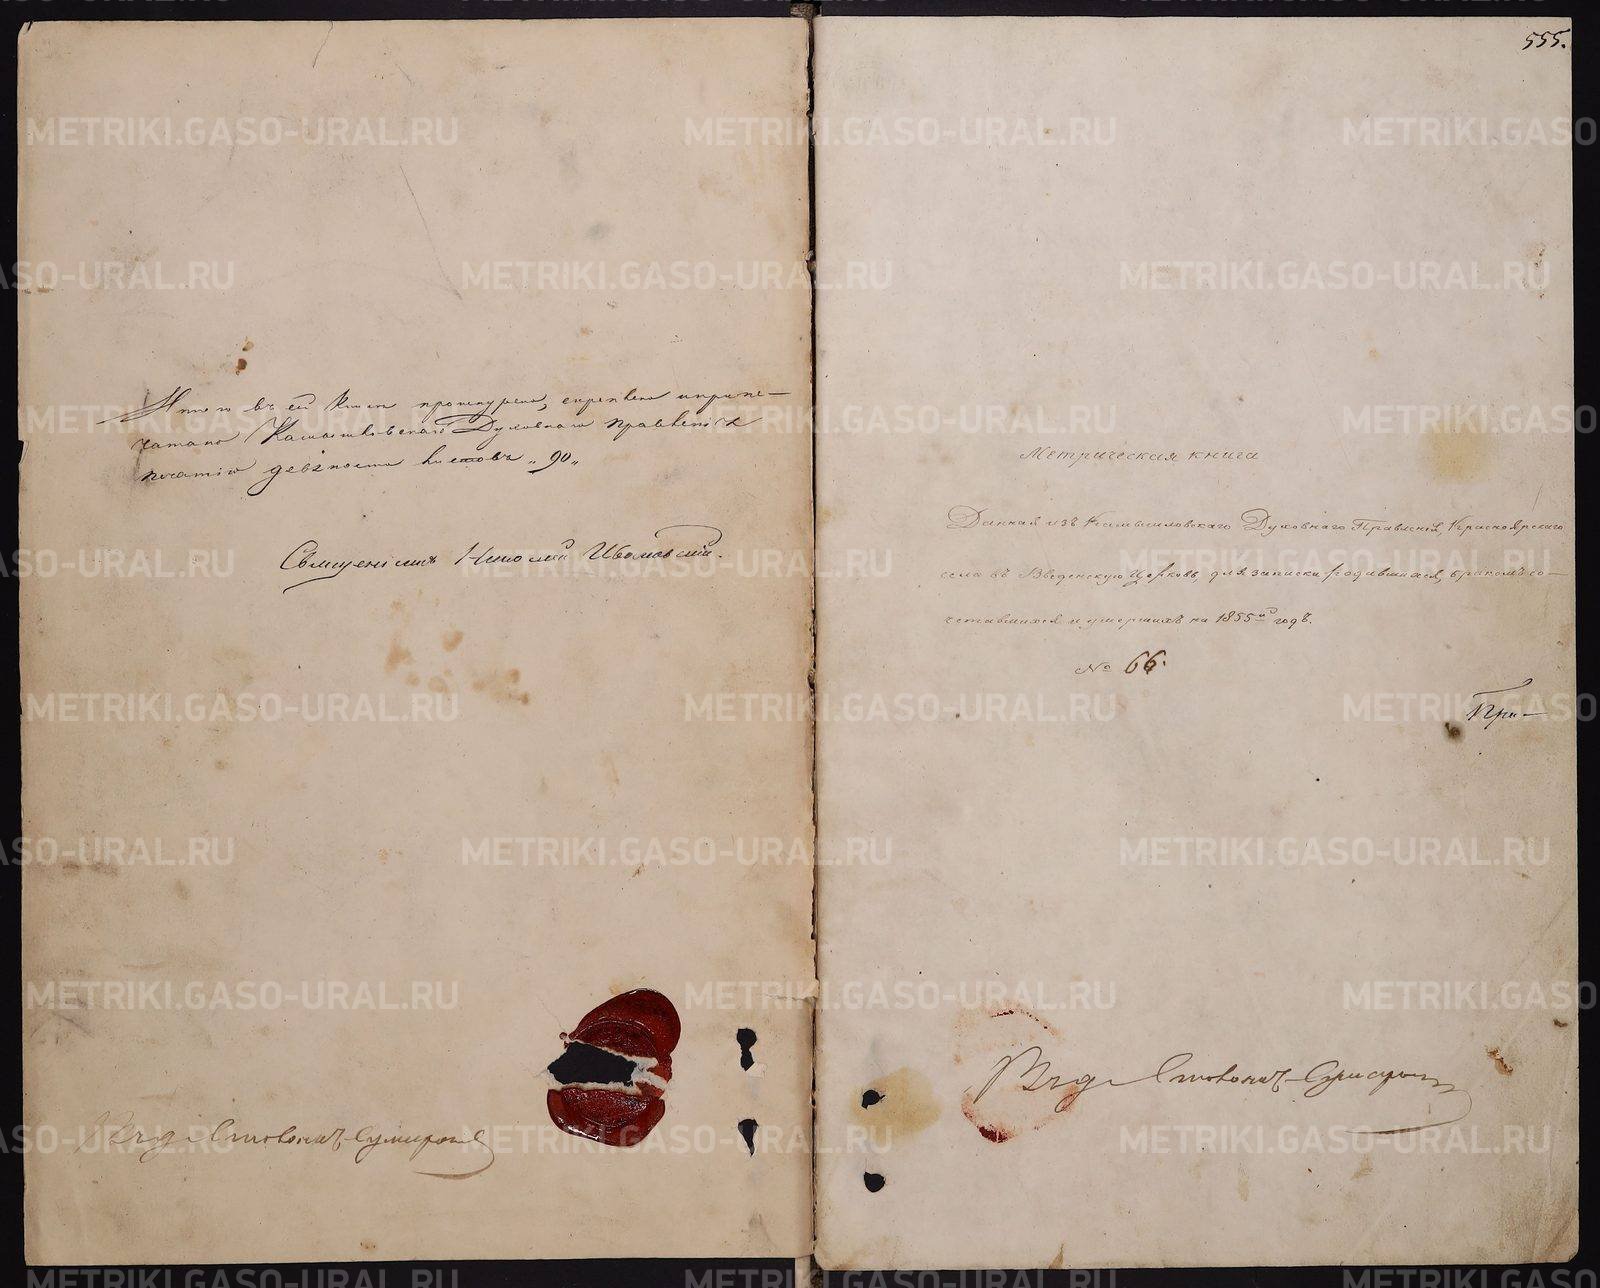 Итого въ сей книгѣ прошнурено, скрѣплено и припе-
чатано Камышловскаго Духовнаго Правленія
печатію девяносто листовъ „90„
Священникъ Николай
555.
Метрическая книга
Данная изъ Камышловскаго Духовнаго Правленія, Красноярскаго
села въ Введенскую Церковь, для записки родившихся, бракомъ со-
четавшихся и умершихъ на 1855й годъ.
№ 66.
При-
METRIKI.GASO-URAL.RU